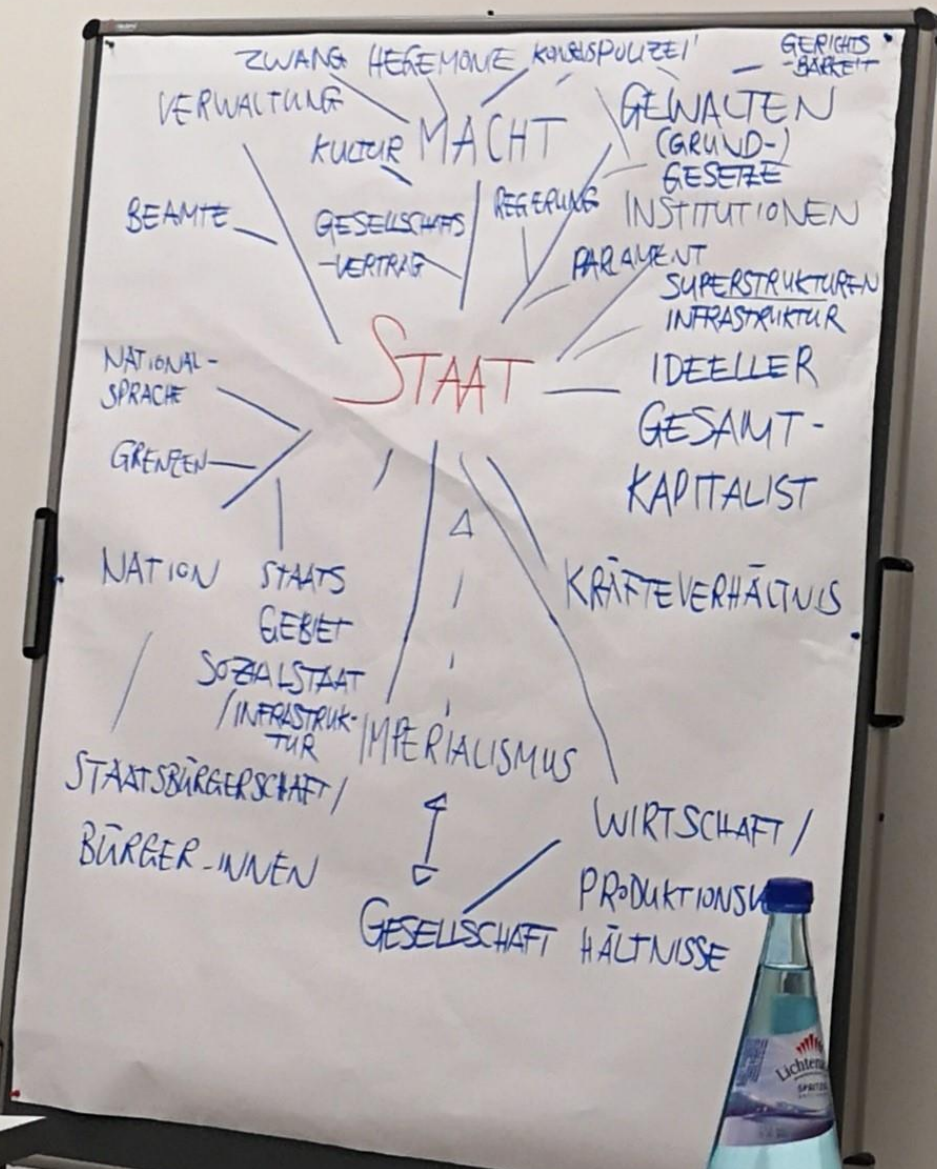 ZWANG HEGEMONIE
GERICHTS
-BARKEIT
VERWALTUNG
GEWALTEN
KULTUR MACHT
(GRUND-)
GESETZE
BEAMTE
GESELLSCHAFTS
-VERTRAG
REGERUNG
INSTITUTIONEN
PARLAMENT
SUPERSTRUKTUREN
INFRASTRUKTUR
STAAT
NATIONAL-
SPRACHE
IDEELLER
GESAMT-
KAPITALIST
GRENZEN
NATION
STAATS
GEBIET
KRÄFTEVERHÄLTNIS
SOZIALSTAAT
/INFRASTRUK-
TUR
IMPERIALISMUS
STAATSBÜRGERSCHAFT/
BÜRGER_INNEN
WIRTSCHAFT/
PRODUKTIONSV
HÄLTNISSE
GESELLSCHAFT
Lichten
SPRITZI